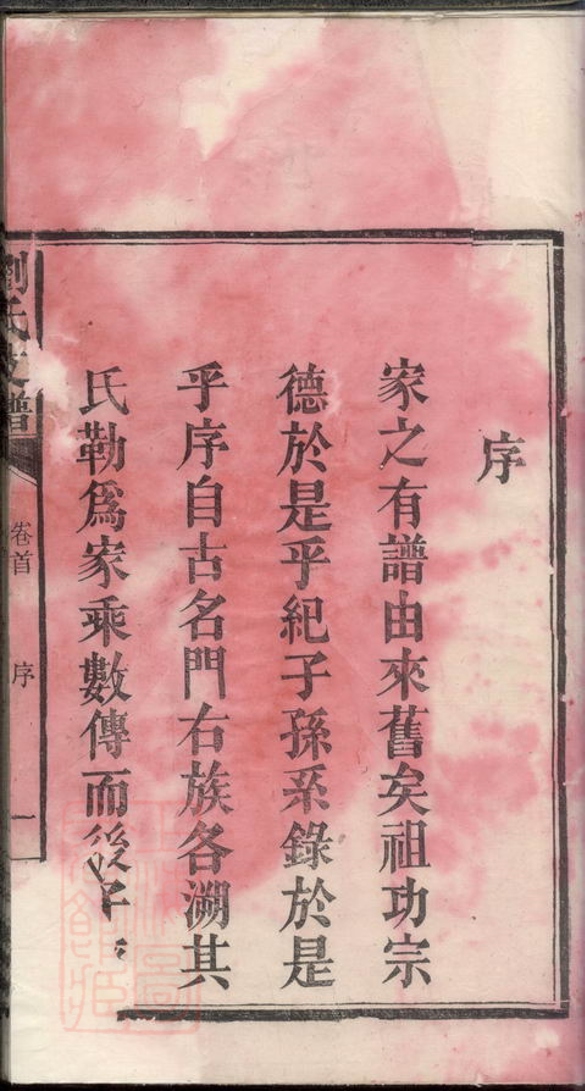 序
家之有譜由來舊矣祖功宗
德於是乎紀子孫系錄於是
乎序自古名門右族各溯其
氏勒爲家乘數傳而後
劉氏支譜
卷首
序
一